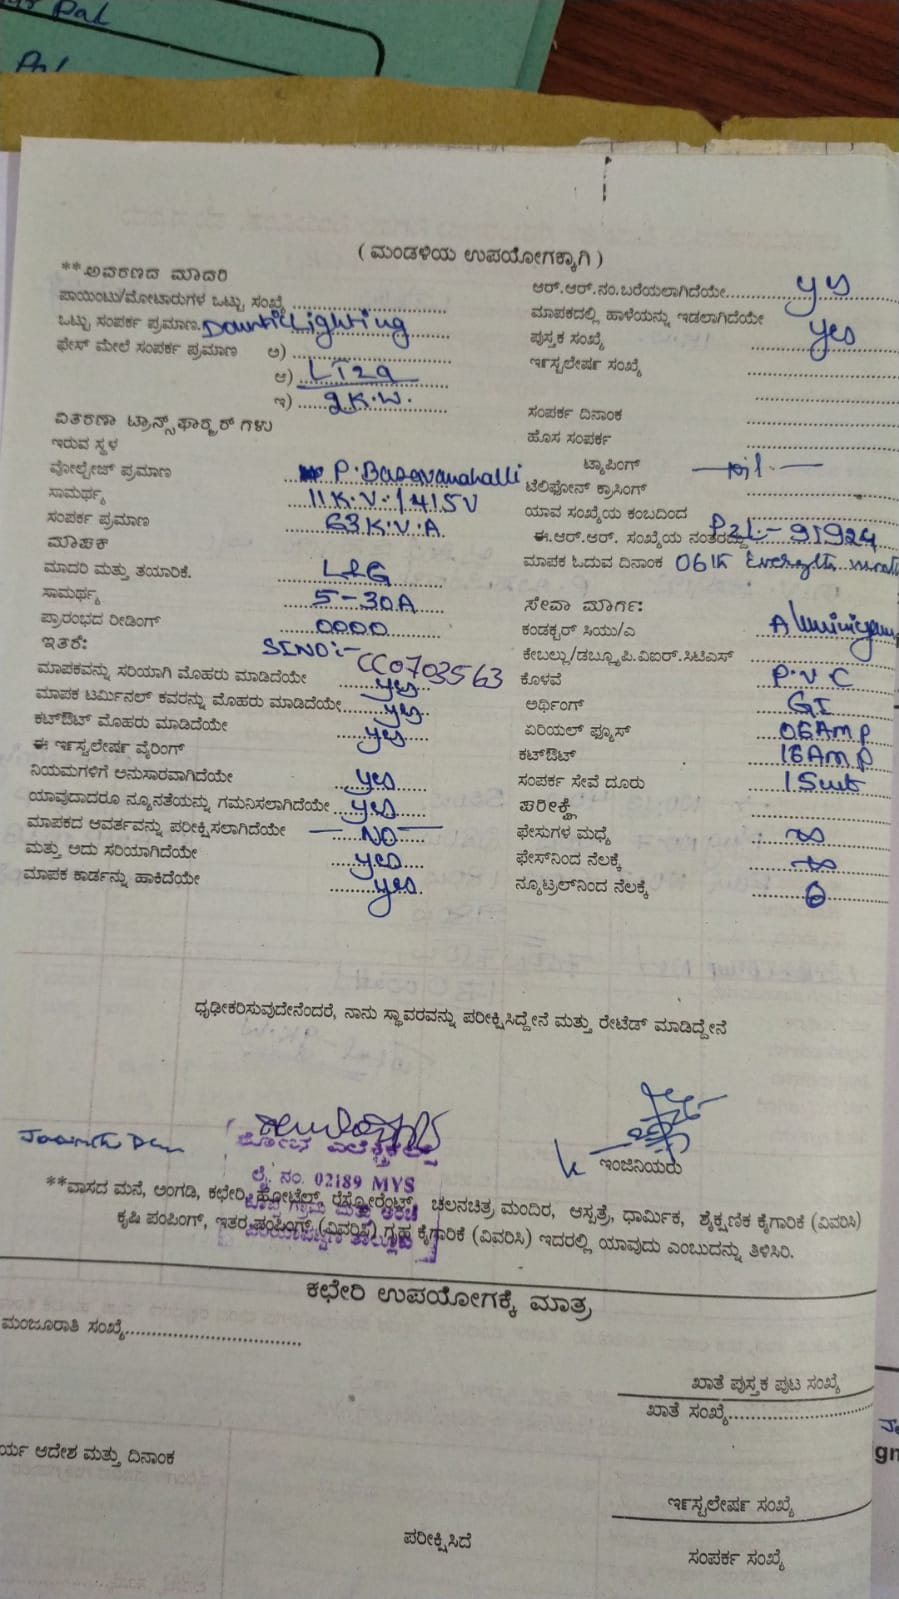 Pal
Pal
( ಮಂಡಳಿಯ ಉಪಯೋಗಕ್ಕಾಗಿ )
**ಅವರಣದ ಮಾದರಿ
ಪಾಯಿಂಟು/ಮೋಟಾರುಗಳ ಒಟ್ಟು ಸಂಖ್ಯೆ
ಒಟ್ಟು ಸಂಪರ್ಕ ಪ್ರಮಾಣ. Lighting
ಫೇಸ್ ಮೇಲೆ ಸಂಪರ್ಕ ಪ್ರಮಾಣ ಅ)
ಆ) LT2a
ಇ) 2K.W.
ವಿತರಣಾ ಟ್ರಾನ್ಸ್‌ಫಾರ್‍ಮರ್ ಗಳು
ಇರುವ ಸ್ಥಳ
ವೋಲ್ಟೇಜ್ ಪ್ರಮಾಣ P. Basavanahalli
ಸಾಮರ್ಥ್ಯ 11K.V./415V
ಸಂಪರ್ಕ ಪ್ರಮಾಣ 63K.V.A
ಮಾಪಕ
ಮಾದರಿ ಮತ್ತು ತಯಾರಿಕೆ. L&G
ಸಾಮರ್ಥ್ಯ 5-30A
ಪ್ರಾರಂಭದ ರೀಡಿಂಗ್ 0000
ಇತರೆ: SlNO:- CC0703563
ಮಾಪಕವನ್ನು ಸರಿಯಾಗಿ ಮೊಹರು ಮಾಡಿದೆಯೇ yes
ಮಾಪಕ ಟರ್ಮಿನಲ್ ಕವರನ್ನು ಮೊಹರು ಮಾಡಿದೆಯೇ yes
ಕಟ್‌ಔಟ್ ಮೊಹರು ಮಾಡಿದೆಯೇ yes
ಈ ಇರ್ನ್ಸ್ಟಲೇಷರ್ನ ವೈರಿಂಗ್
ನಿಯಮಗಳಿಗೆ ಅನುಸಾರವಾಗಿದೆಯೇ yes
ಯಾವುದಾದರೂ ನ್ಯೂನತೆಯನ್ನು ಗಮನಿಸಲಾಗಿದೆಯೇ yes
ಮಾಪಕದ ಆವರ್ತವನ್ನು ಪರೀಕ್ಷಿಸಲಾಗಿದೆಯೇ — NO —
ಮತ್ತು ಅದು ಸರಿಯಾಗಿದೆಯೇ yes
ಮಾಪಕ ಕಾರ್ಡನ್ನು ಹಾಕಿದೆಯೇ yes
ಆರ್.ಆರ್.ನಂ.ಬರೆಯಲಾಗಿದೆಯೇ yes
ಮಾಪಕದಲ್ಲಿ ಹಾಳೆಯನ್ನು ಇಡಲಾಗಿದೆಯೇ yes
ಪುಸ್ತಕ ಸಂಖ್ಯೆ
ಇರ್ನ್ಸ್ಟಲೇಷರ್ನ ಸಂಖ್ಯೆ
ಸಂಪರ್ಕ ದಿನಾಂಕ
ಹೊಸ ಸಂಪರ್ಕ
ಟ್ಯಾಪಿಂಗ್ — Nil —
ಟೆಲಿಫೋನ್ ಕ್ರಾಸಿಂಗ್
ಯಾವ ಸಂಖ್ಯೆಯ ಕಂಬದಿಂದ
ಈ.ಆರ್.ಆರ್. ಸಂಖ್ಯೆಯ ನಂತರದ್ದು P2L-91924
ಮಾಪಕ ಓದುವ ದಿನಾಂಕ 06th
ಸೇವಾ ಮಾರ್ಗ:
ಕಂಡಕ್ಟರ್ ಸಿಯು/ಎ Aluminiyam
ಕೇಬಲ್ಲು/ಡಬ್ಲ್ಯೂ.ಪಿ.ವಿಐರ್.ಸಿಟಿಎಸ್
ಕೊಳವೆ P.V C
ಅರ್ಥಿಂಗ್ GI
ಏರಿಯಲ್ ಫ್ಯೂಸ್ 06Amp
ಕಟ್‌ಔಟ್ 16Amp
ಸಂಪರ್ಕ ಸೇವೆ ದೂರು
ಪರೀಕ್ಷೆ
ಫೇಸುಗಳ ಮಧ್ಯೆ ∞
ಫೇಸ್‌ನಿಂದ ನೆಲಕ್ಕೆ ∞
ನ್ಯೂಟ್ರಲ್‌ನಿಂದ ನೆಲಕ್ಕೆ 0
ಧೃಢೀಕರಿಸುವುದೇನೆಂದರೆ, ನಾನು ಸ್ಥಾವರವನ್ನು ಪರೀಕ್ಷಿಸಿದ್ದೇನೆ ಮತ್ತು ರೇಟೆಡ್ ಮಾಡಿದ್ದೇನೆ
ಲೈ. ನಂ. 02189 MYS
ಇಂಜಿನಿಯರು
**ವಾಸದ ಮನೆ, ಅಂಗಡಿ, ಕಛೇರಿ, ಹೋಟೆಲ್, ರೆಸ್ಟೋರೆಂಟ್, ಚಲನಚಿತ್ರ ಮಂದಿರ, ಆಸ್ಪತ್ರೆ, ಧಾರ್ಮಿಕ, ಶೈಕ್ಷಣಿಕ ಕೈಗಾರಿಕೆ (ವಿವರಿಸಿ)
ಕೃಷಿ ಪಂಪಿಂಗ್, ಇತರ ಪಂಪಿಂಗ್ (ವಿವರಿಸಿ) ಗೃಹ ಕೈಗಾರಿಕೆ (ವಿವರಿಸಿ) ಇದರಲ್ಲಿ ಯಾವುದು ಎಂಬುದನ್ನು ತಿಳಿಸಿರಿ.
ಕಛೇರಿ ಉಪಯೋಗಕ್ಕೆ ಮಾತ್ರ
ಮಂಜೂರಾತಿ ಸಂಖ್ಯೆ
ಖಾತೆ ಪುಸ್ತಕ ಪುಟ ಸಂಖ್ಯೆ
ಖಾತೆ ಸಂಖ್ಯೆ
ರ್ಯ ಆದೇಶ ಮತ್ತು ದಿನಾಂಕ
ಇರ್ನ್ಸ್ಟಲೇಷರ್ನ ಸಂಖ್ಯೆ
ಪರೀಕ್ಷಿಸಿದೆ
ಸಂಪರ್ಕ ಸಂಖ್ಯೆ